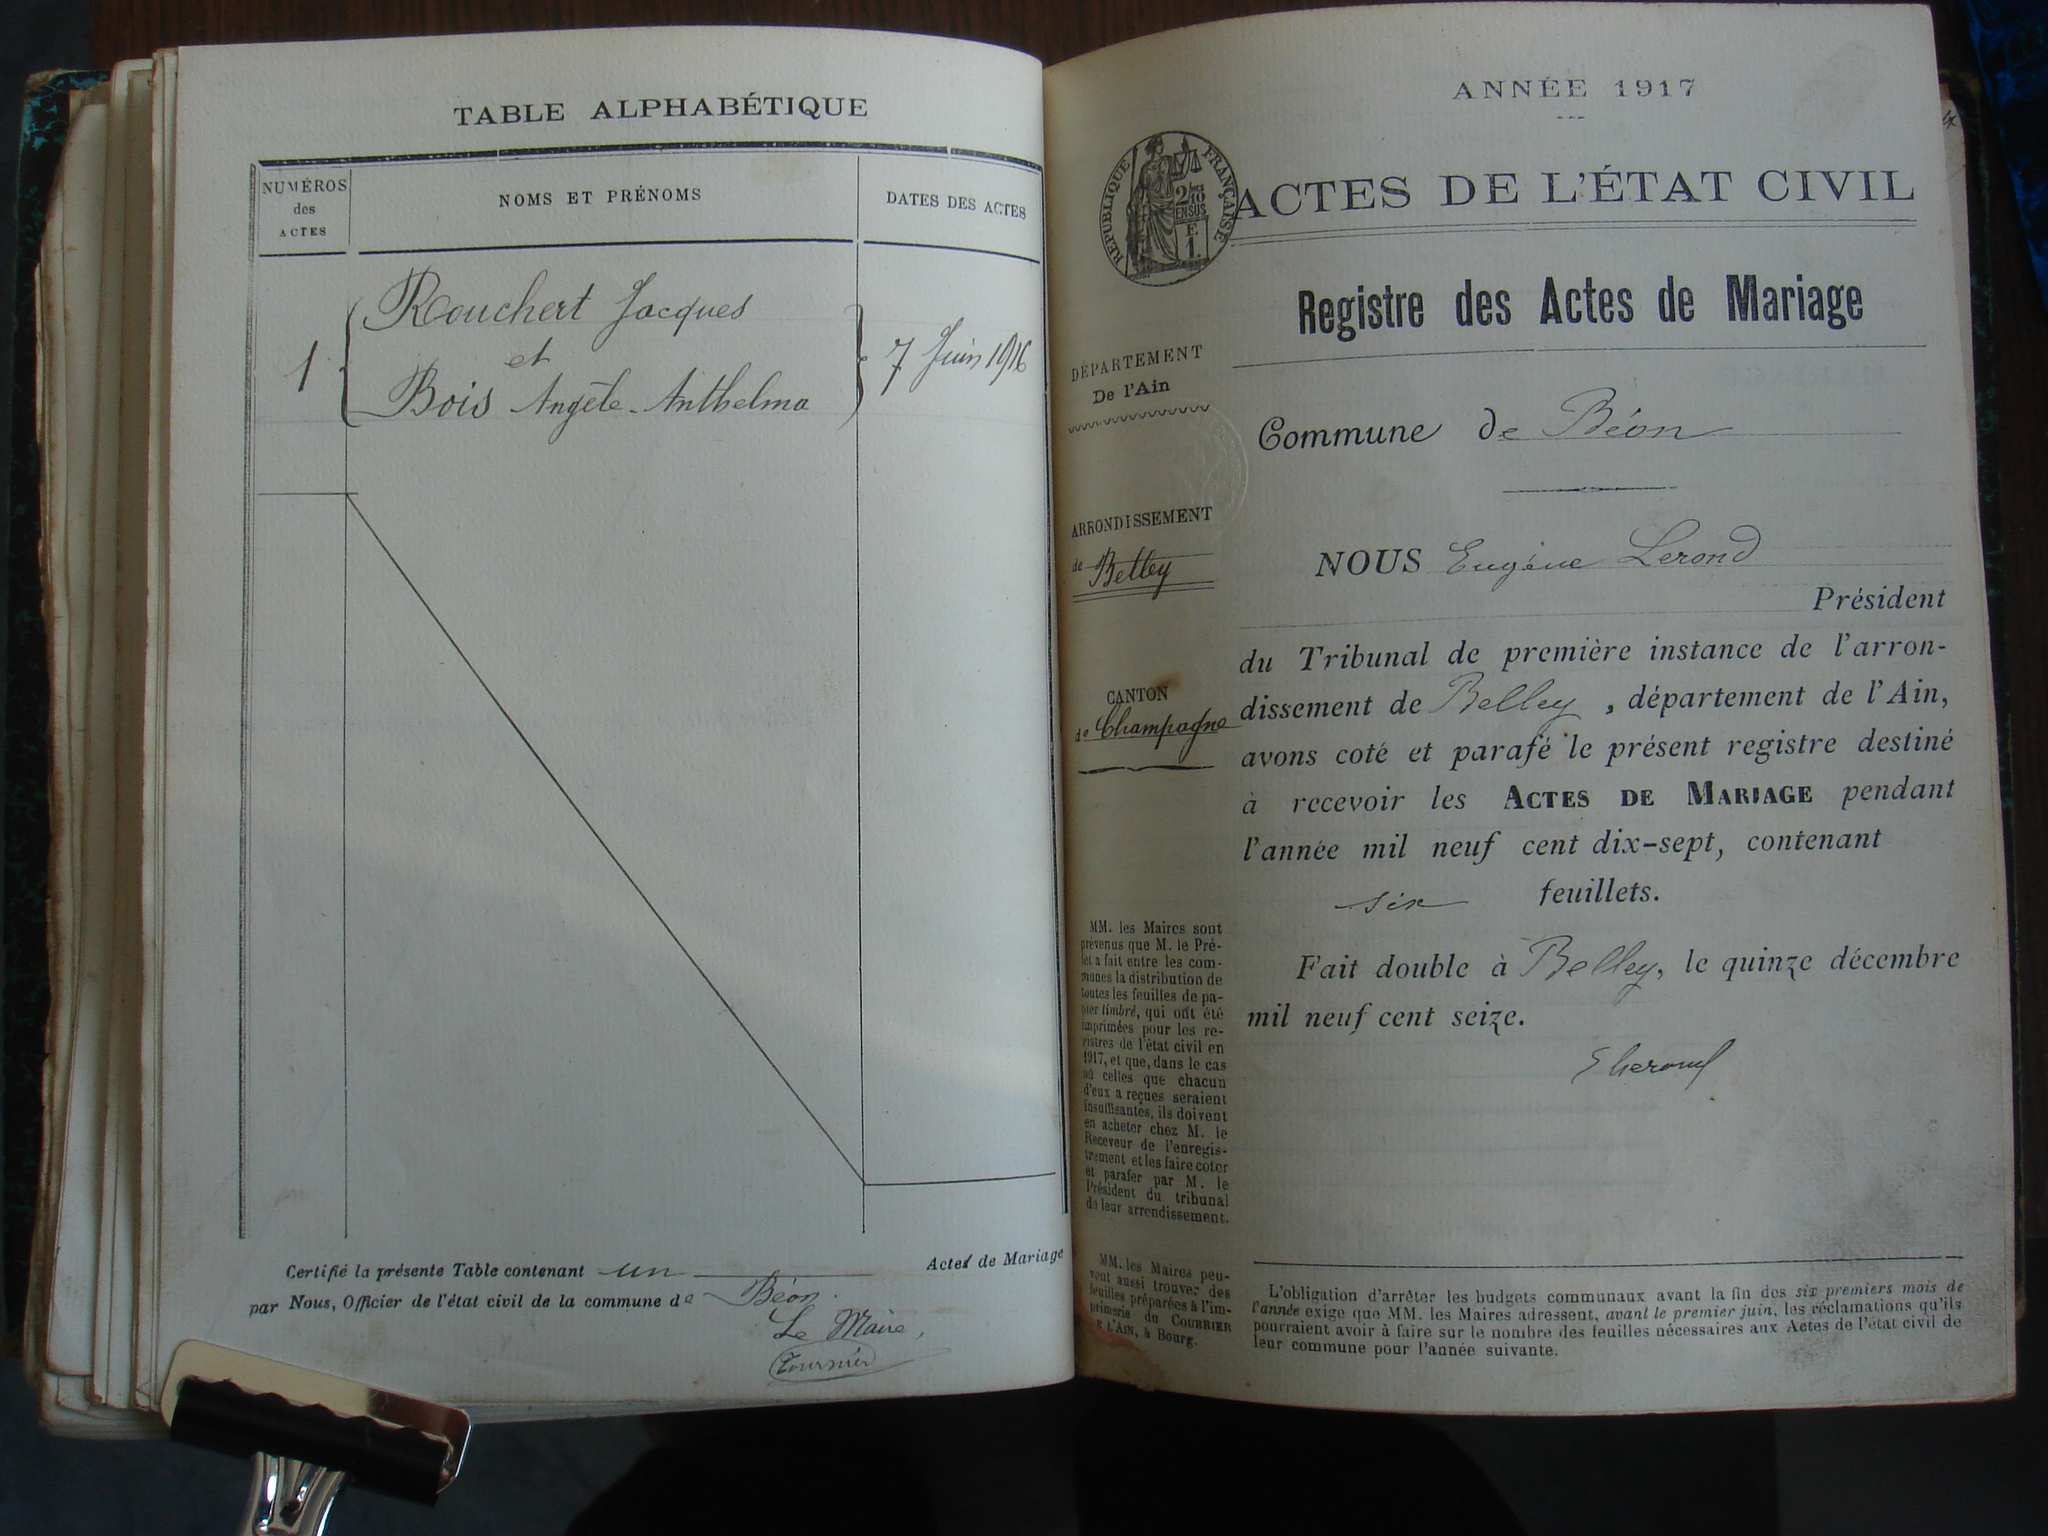 TABLE ALPHABÉTIQUE
NUMÉROS
des
ACTES
NOMS ET PRÉNOMS
DATES DES ACTES
1
Rouchert Jacques
et
Bois Angèle-Anthelma
7 Juin 1916
Certifié la présente Table contenant un Actes de Mariage
par Nous, Officier de l'état civil de la commune de Béon.
Le Maire,
Tournier
ANNÉE 1917
RÉPUBLIQUE FRANÇAISE
ACTES DE L'ÉTAT CIVIL
Registre des Actes de Mariage
DÉPARTEMENT
De l'Ain
ARRONDISSEMENT
de Belley
CANTON
de Champagne
MM. les Maires sont
prévenus que M. le Pré-
fet a fait entre les com-
munes la distribution de
toutes les feuilles de pa-
pier timbré, qui ont été
imprimées pour les re-
gistres de l'état civil en
1917, et que, dans le cas
où celles que chacun
d'eux a reçues seraient
insuffisantes, ils doivent
en acheter chez M. le
Receveur de l'enregis-
trement et les faire coter
et parafer par M. le
Président du tribunal
de leur arrondissement.
MM. les Maires peu-
vent aussi trouver des
feuilles préparées à l'im-
primerie du COURRIER
DE L'AIN, à Bourg.
Commune de Béon
NOUS Eugène Lerond
Président
du Tribunal de première instance de l'arron-
dissement de Belley, département de l'Ain,
avons coté et parafé le présent registre destiné
à recevoir les ACTES DE MARIAGE pendant
l'année mil neuf cent dix-sept, contenant
six feuillets.
Fait double à Belley, le quinze décembre
mil neuf cent seize.
L'obligation d'arrêter les budgets communaux avant la fin des six premiers mois de
l'année exige que MM. les Maires adressent, avant le premier juin, les réclamations qu'ils
pourraient avoir à faire sur le nombre des feuilles nécessaires aux Actes de l'état civil de
leur commune pour l'année suivante.